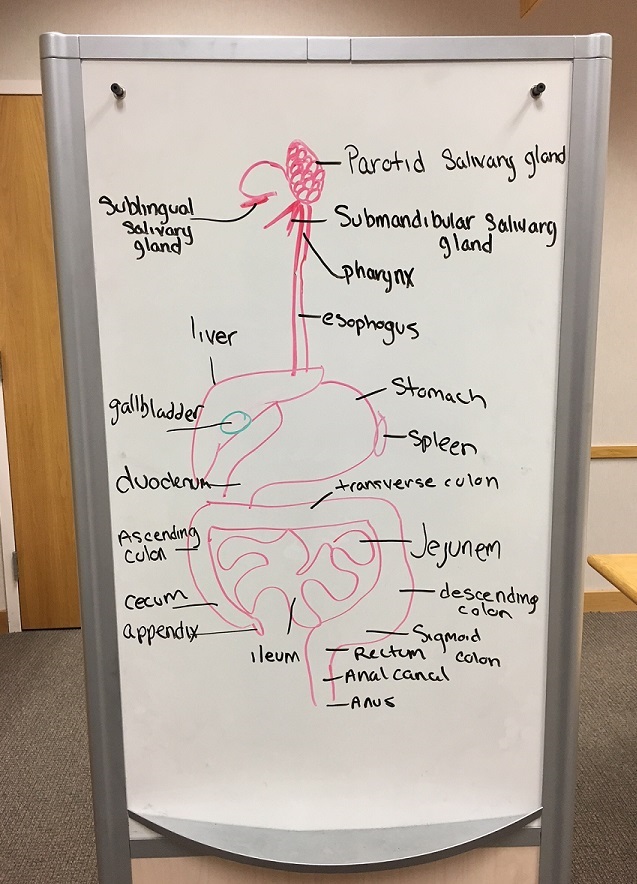 Parotid Salivary gland
Sublingual
Salivary
gland
Submandibular Salivary
gland
pharynx
esophogus
liver
Stomach
gallbladder
Spleen
duodenum
transverse colon
Ascending
colon
Jejunem
cecum
descending
colon
appendix
Sigmoid
colon
ileum
Rectum
Anal canal
Anus